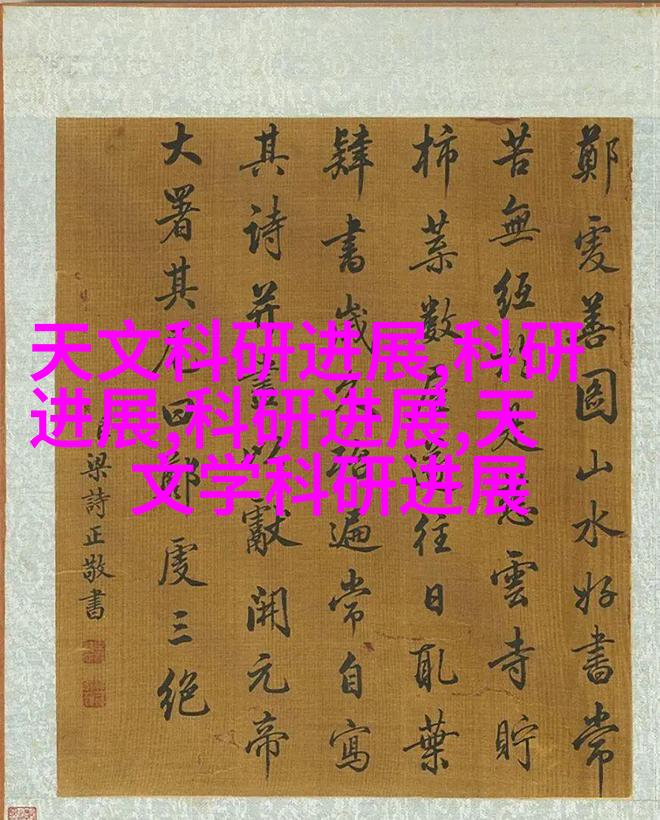 天文科研进展,科研
进展,科研进展,天
文学科研进展
鄭虔善圖山水好書常
苦無紙於是慈雲寺貯
柿葉數屋遂往日取葉
肄書歲久殆遍常自寫
其詩並畫以獻開元帝
大署其尾曰鄭虔三絕
梁詩正敬書